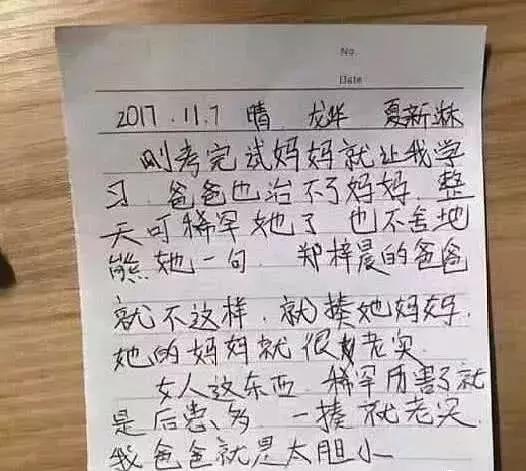 No.
Date
2017.11.7 晴 龙华 夏新淋
刚考完试妈妈就让我学
习. 爸爸也治不了妈妈. 整
天可稀罕她了 也不舍地
熊她一句. 郑梓晨的爸爸
就不这样. 就揍她妈妈.
她的妈妈就很老实
女人这东西. 稀罕厉害了就
是后患多. 一揍就老实
我爸爸就是太胆小